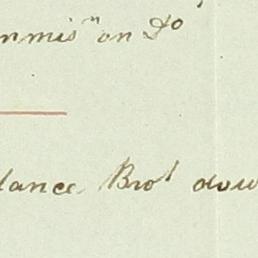 ommisⁿ on Dº
lance Broᵗ dow